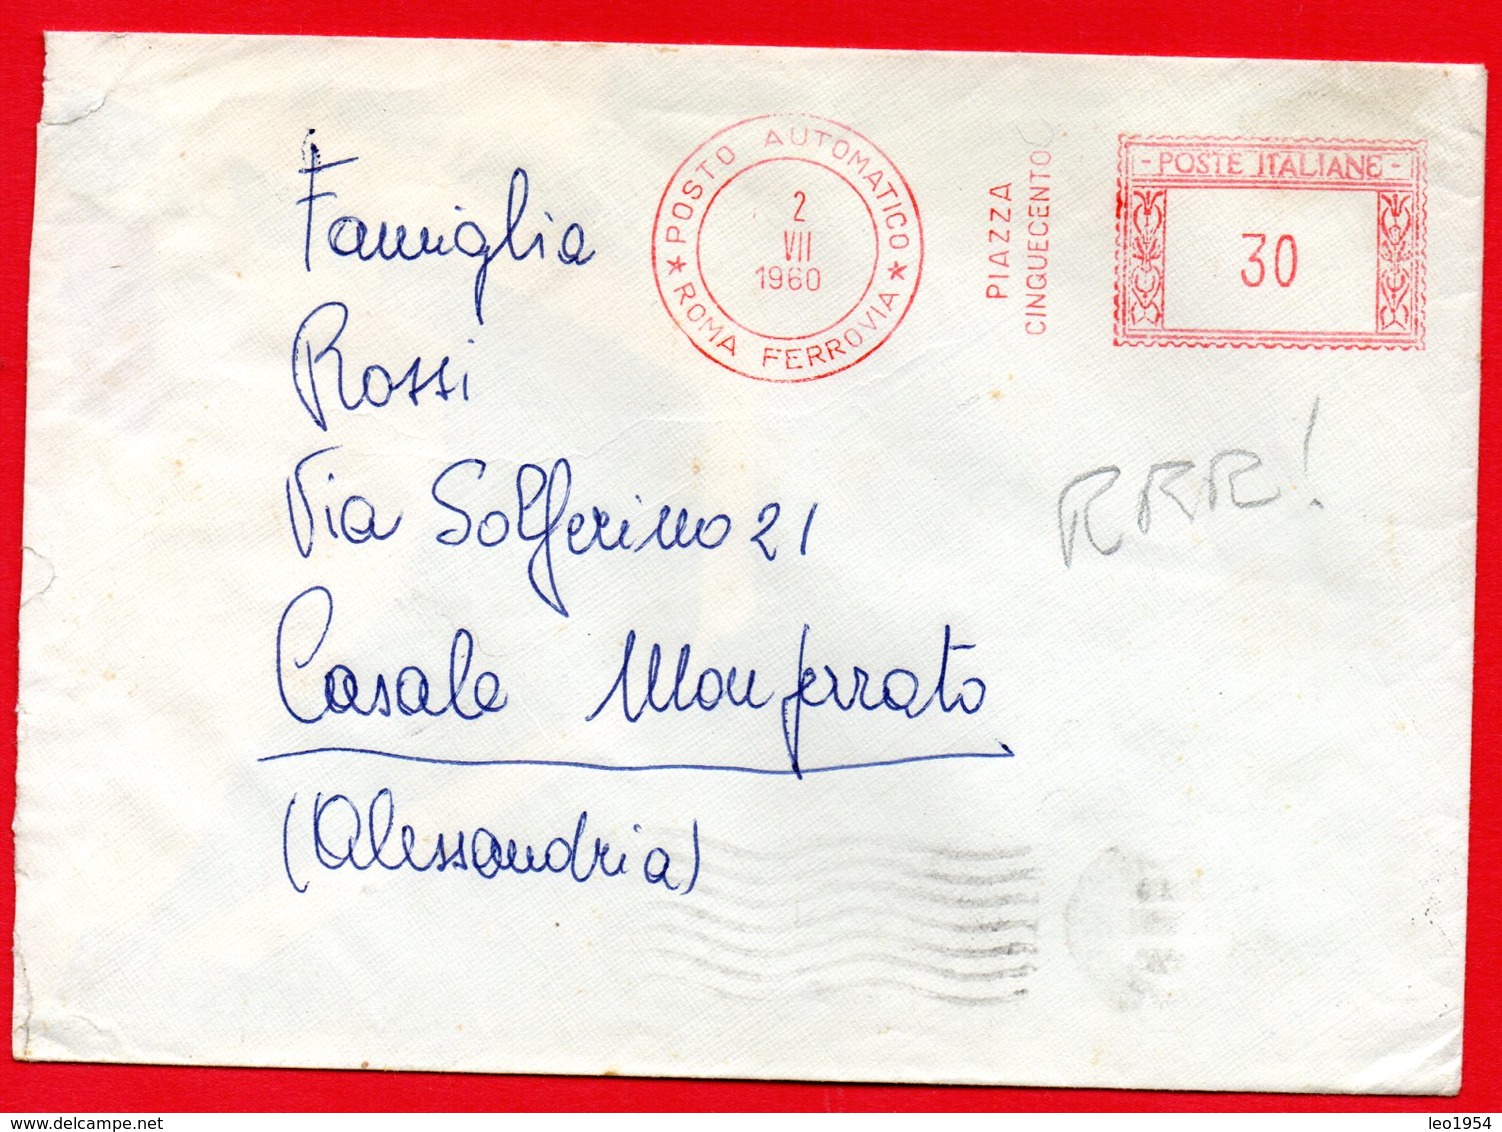 POSTO AUTOMATICO
2
VII
1960
★ ROMA FERROVIA ★
PIAZZA
CINQUECENTO
- POSTE ITALIANE -
30
Famiglia
Rossi
Via Solferino 21
Casale Monferrato
(Alessandria)
RRR!
leo1954